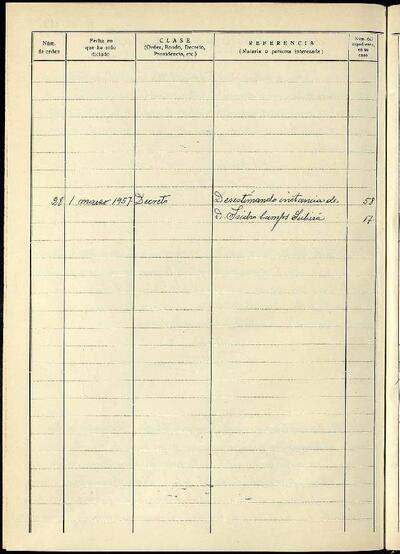 Núm. de orden
Fecha en que ha sido dictado
CLASE
(Orden, Bando, Decreto, Providencia, etc.)
REFERENCIA
(Materia o persona interesada)
Núm. del expediente, en su caso
28 1 marzo 1957 Decreto Desestimando instancia de 58
D. Isidro Camps Subirá 17